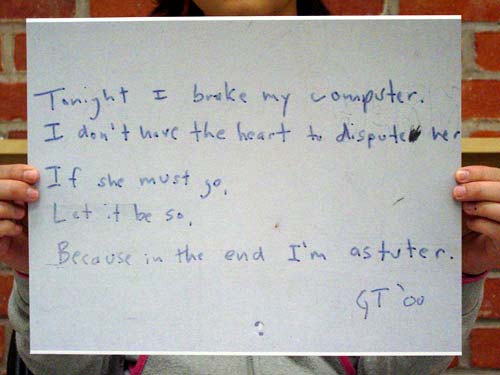 Tonight I broke my computer.
I don't have the heart to dispute her
If she must go,
Let it be so,
Because in the end I'm astuter.
GT '00